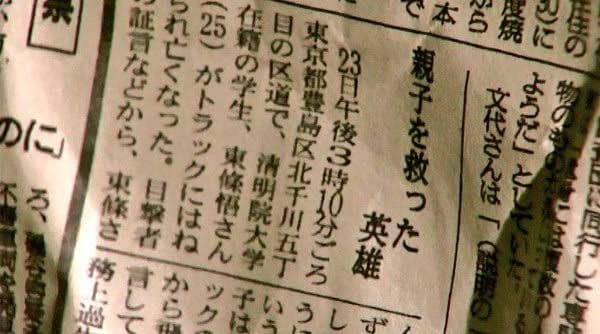 在住の
度焼
から
本
で
に同行した専
ようだ」としていた
文代さんは「(説明の
親子を救った
英雄
23日午後3時10分ごろ
東京都豊島区北千川五丁
目の区道で、清明院大学
在籍の学生、東條悟さん
(25)がトラックにはね
られ亡くなった。目撃者
の証言などから、東條さ
ん
ず
し
うに
いう
子は
ックの
から
言して
務上過
のに」
ろ、